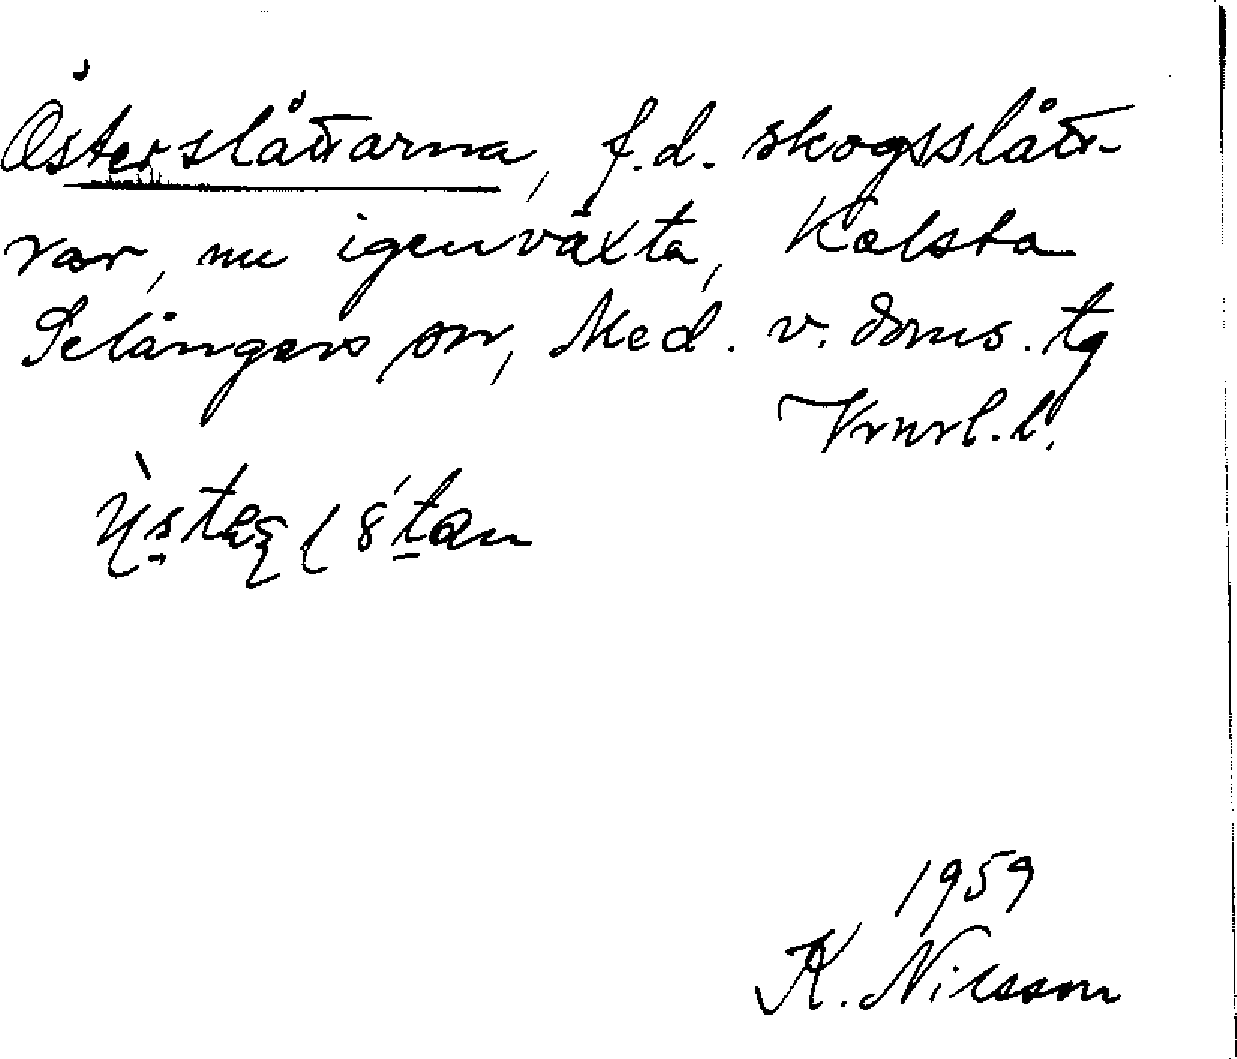 Österslåttarna, f.d. skogsslått-
rar, nu igenväxta, Kælsta
Selångers sn, Med. v. doms. tg
Vrnrl. l.
1959
K. Nilsson